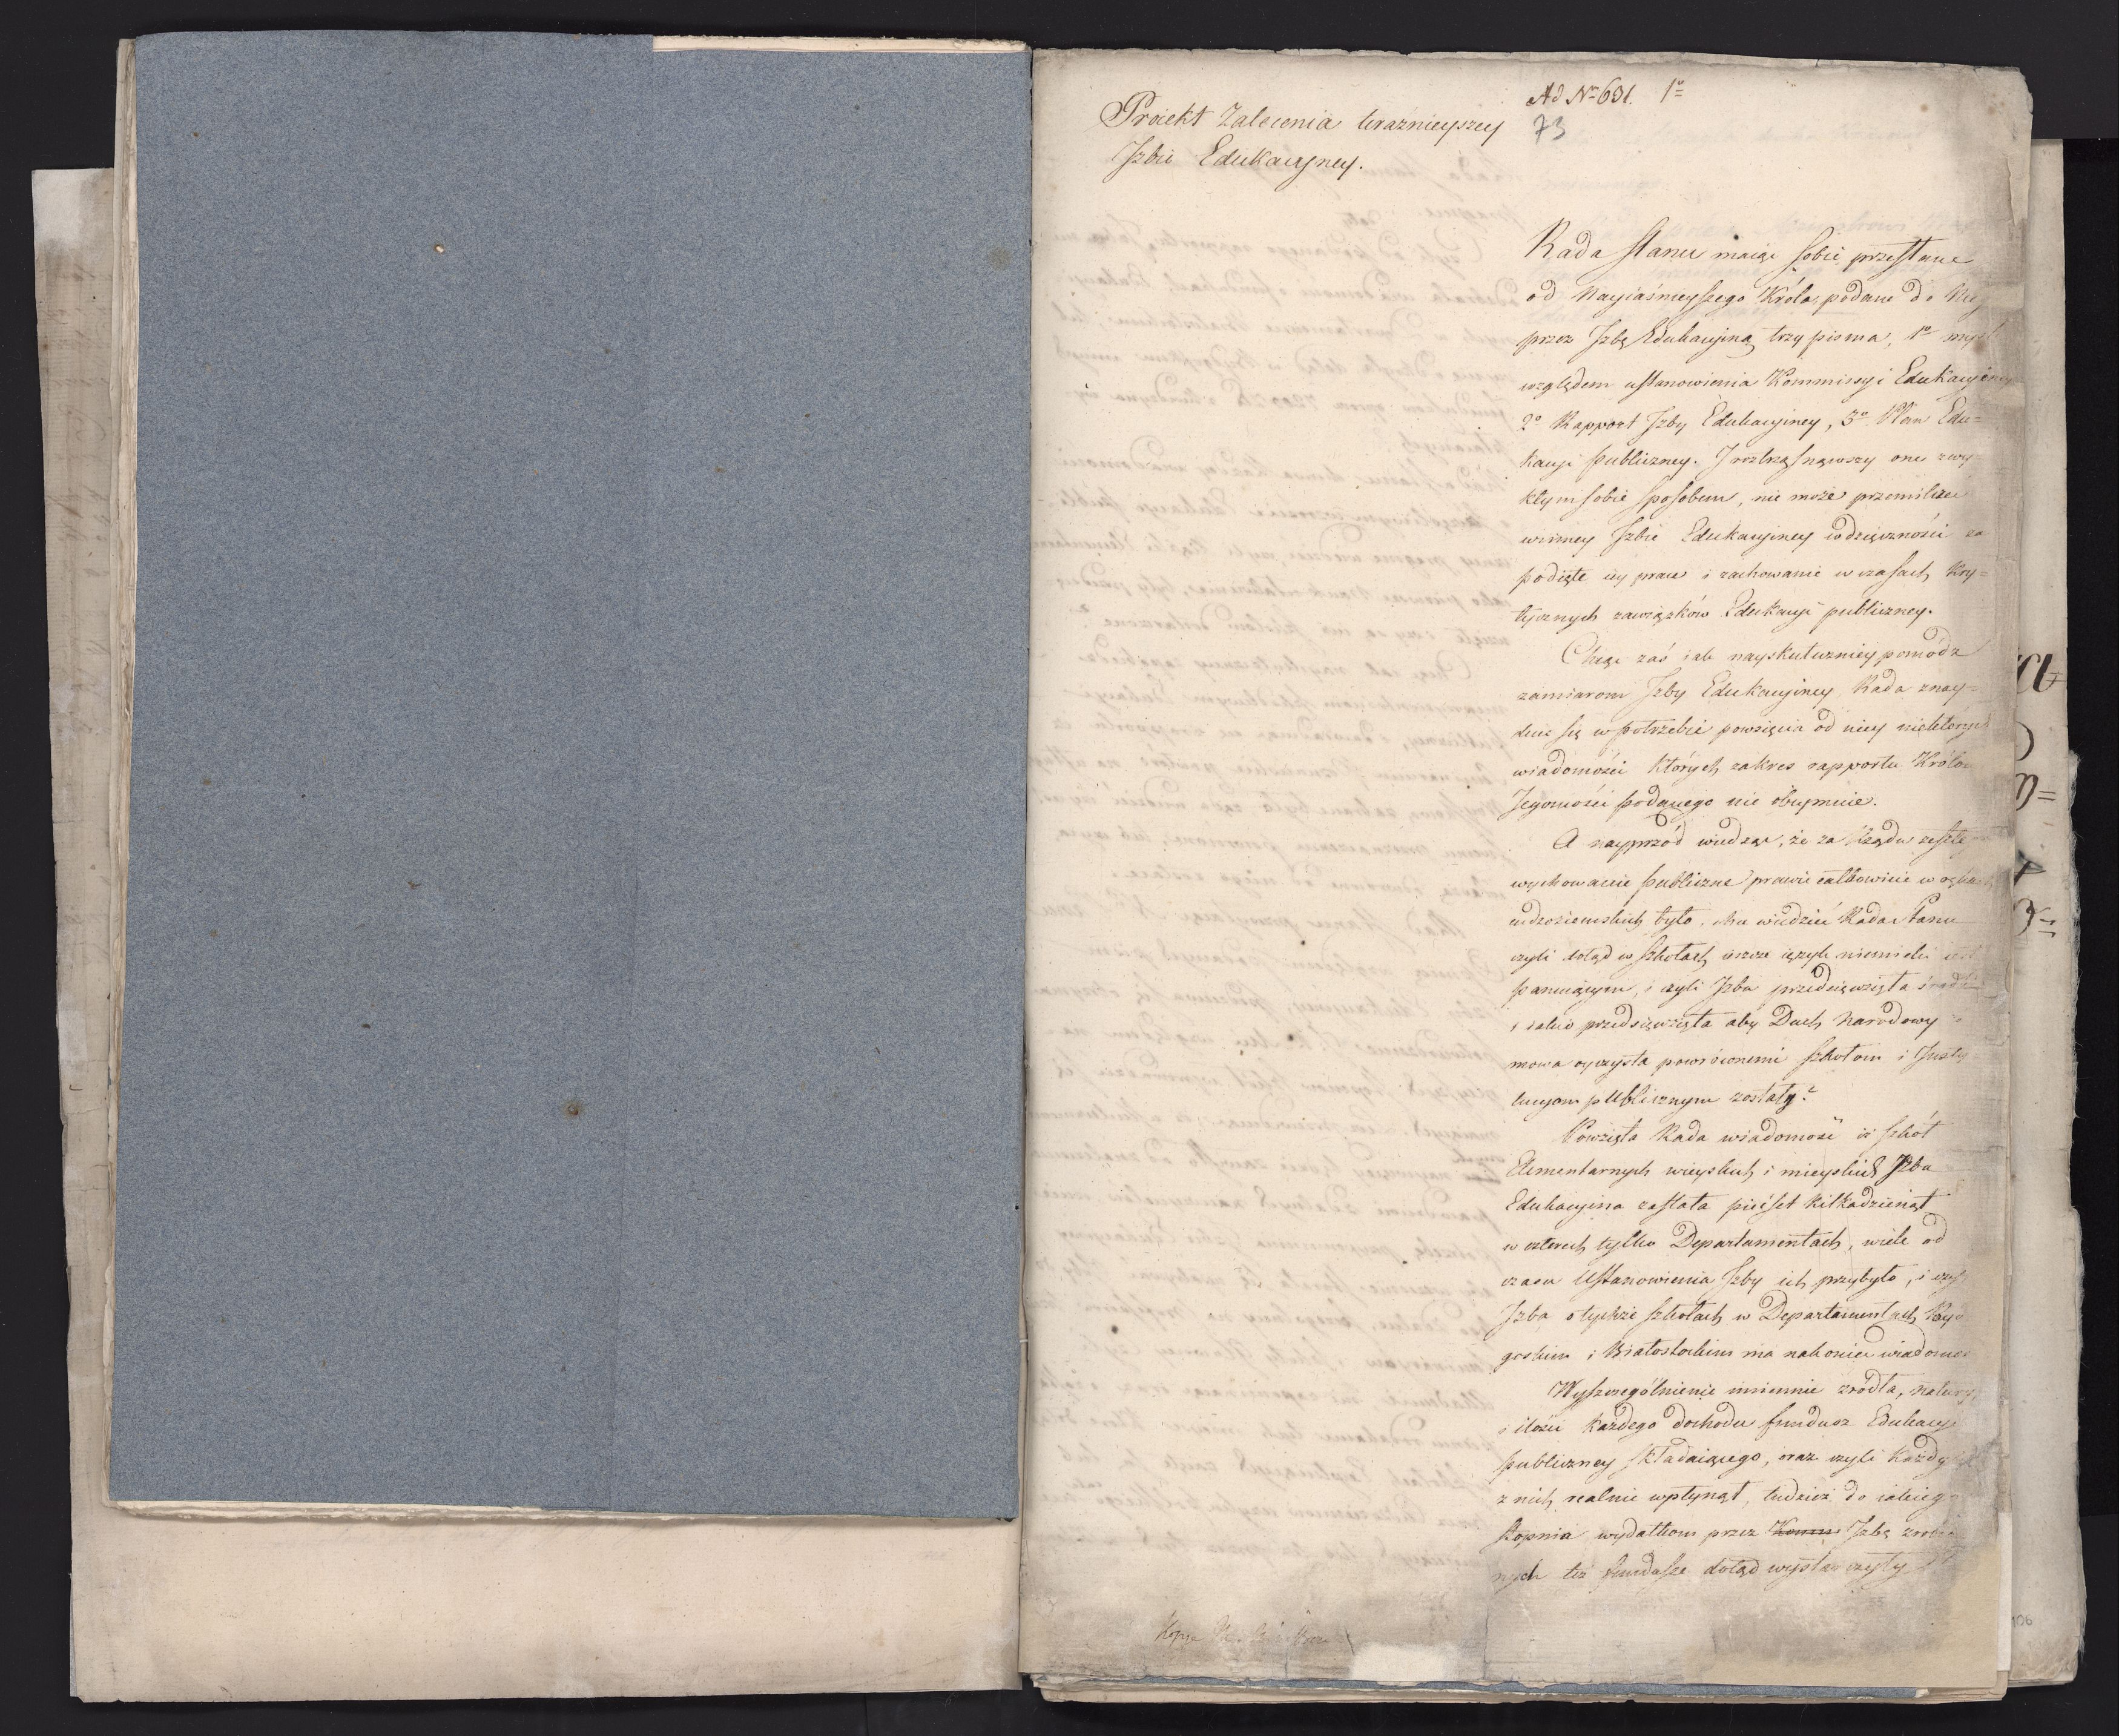 Ad No 631. 1o
73
Proiekt Zalecenia teraźnieyszey
Jzbie Edukacyjney.
Rada Stanu maiąc sobie przesłane
od Nayiaśnieyszego Króla, podane do Niego
przez Jzbę Edukacyiną trzy pisma, 1o myśl
względem ustanowienia Kommissyi Edukacyiney
2o Rapport Jzby Edukacyiney, 3o Plan Edu=
kacyi publiczney. J roztrząsnąwszy one zwy=
kłym sobie sposobem, nie może przemilczeć
winney Jzbie Edukacyiney wdzięczności za
podięte iey prace i zachowanie w czasach kry=
tycznych zawiązków Edukacyi publiczney.
Chcąc zaś iak nayskuteczniey pomódz
zamiarom Jzby Edukacyiney Rada znay=
duie się w potrzebie powzięcia od niey niektórych
wiadomości których zakres rapportu Królowi
Jegomości podanego nie obeymuie.
A nayprzód wiedząc, że za Rządu
wychowanie publiczne prawie całkowicie w ręku
cudzoziemskich było. Ma wiedzieć Rada Stanu
czyli dotąd w szkołach ieszcze ięzyk niemiecki iest
panuiącym, i czyli Jzba przedsięwzięła środki
i iakie przedsięwzięła aby Duch Narodowy
mowa oyczysta powróconemi szkołom i Insty
tucyom publicznym zostały?
Powzięła Rada wiadomość iż szkół
Elementarnych wieyskich i mieyskich Jzba
Edukacyina zastała pięćset kilkadziesiąt
w czterech tylko Departamentach, wiele od
czasu Ustanowienia Jzby ich przybyło, i czy
Jzba o tychże szkołach w Departamentach Byd
goskim i Białostockim ma nakoniec wiadomość
Wyszczególnienie imiennie źródła, natury,
i ilości każdego dochodu fundusz Edukacyi
publiczney składaiącego, oraz czyli każdy
z nich realnie wpłynął, tudzież do iakiego
stopnia wydatkom przez Jzbę zrobio
nych też fundusze dotąd wystarczyły
Kopia
106